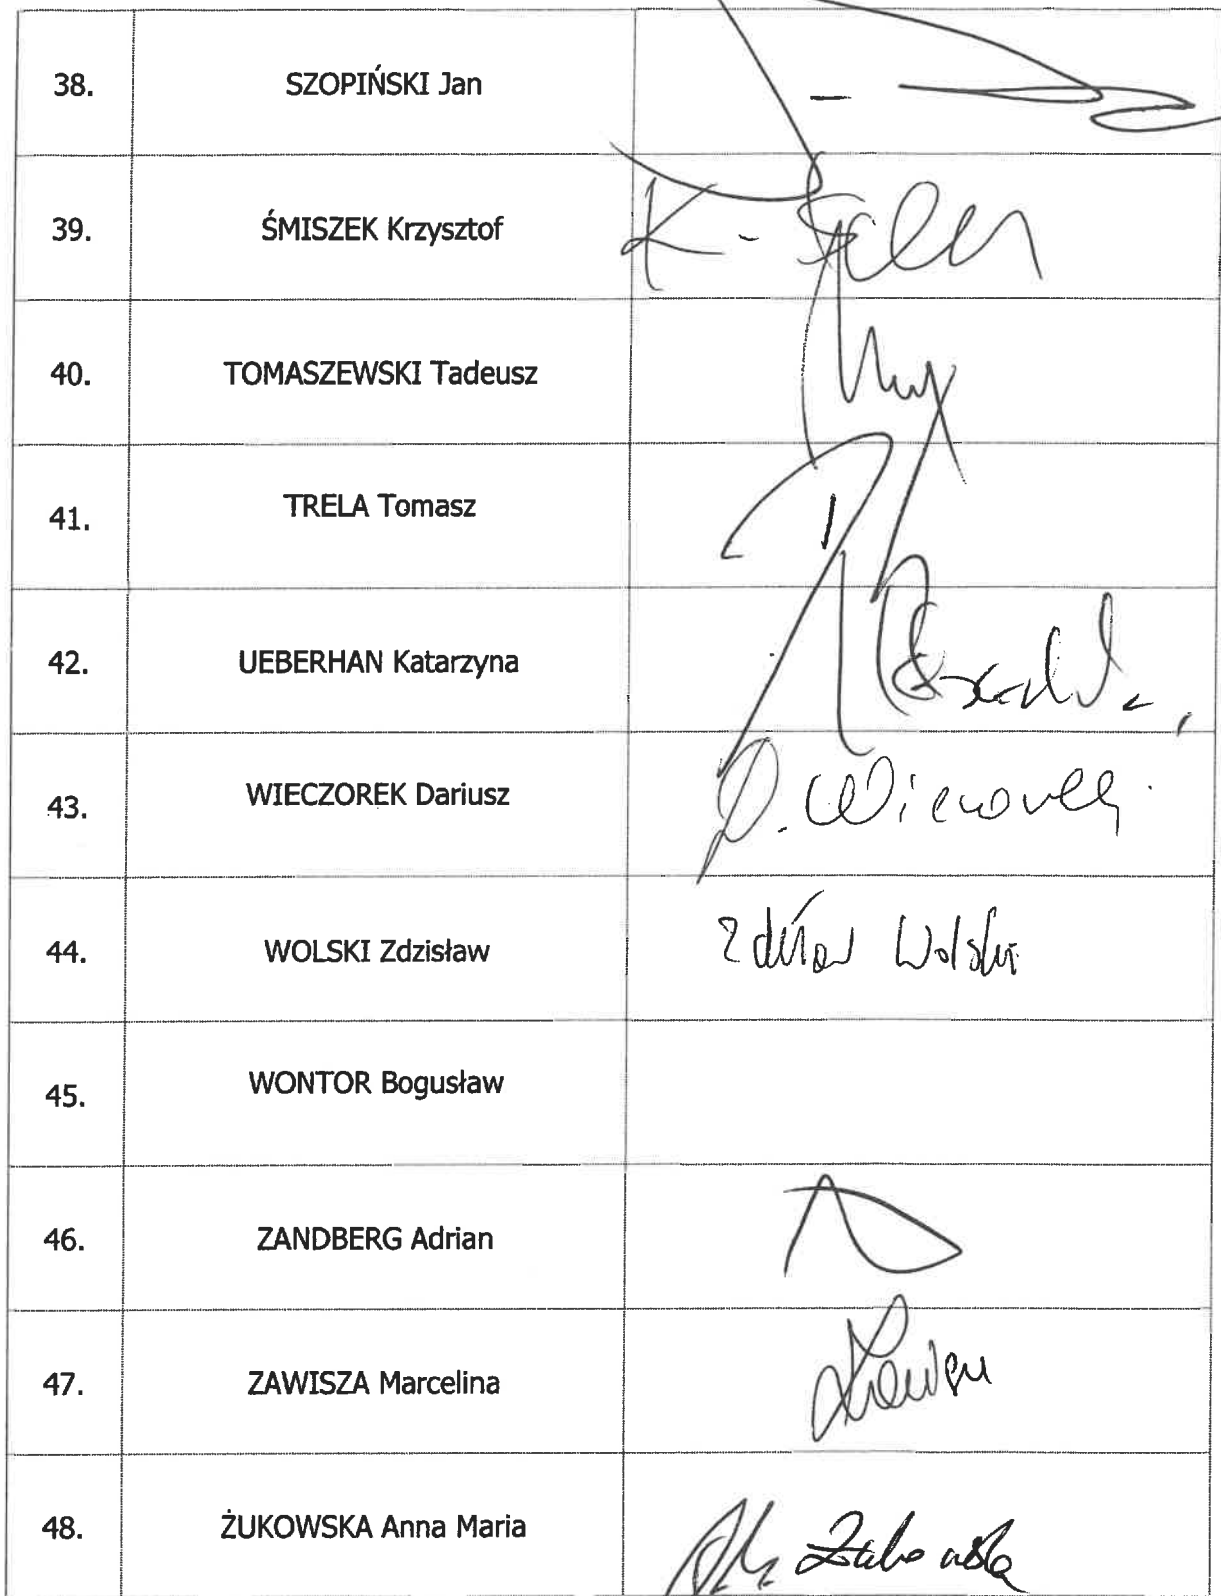 38. SZOPIŃSKI Jan
39. ŚMISZEK Krzysztof
40. TOMASZEWSKI Tadeusz
41. TRELA Tomasz
42. UEBERHAN Katarzyna
43. WIECZOREK Dariusz D. Wieczorek
44. WOLSKI Zdzisław Zdzisław Wolski
45. WONTOR Bogusław
46. ZANDBERG Adrian
47. ZAWISZA Marcelina
48. ŻUKOWSKA Anna Maria Żukowska